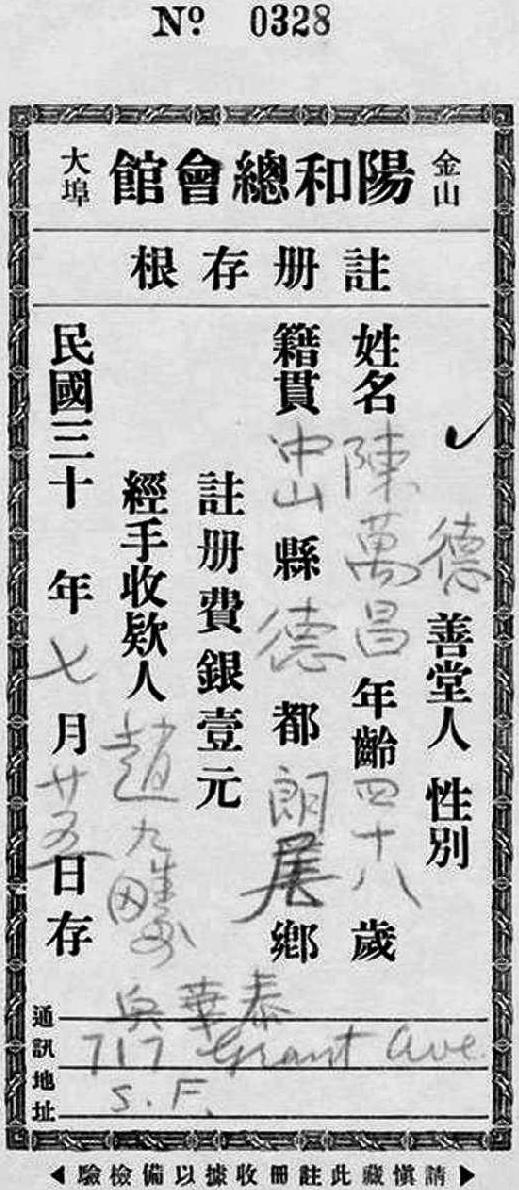 Nº 0328
金山 陽和總會館 大埠
註册存根
德善堂人 性別
姓名陳萬昌年齡四十八歲
籍貫中山縣德都朗尾鄉
註册費銀壹元
經手收欵人趙九疇
民國三十年七月廿五日存
通訊地址
華泰
717 Grant Ave.
S. F.
▶請慎藏此註冊收據以備檢驗◀